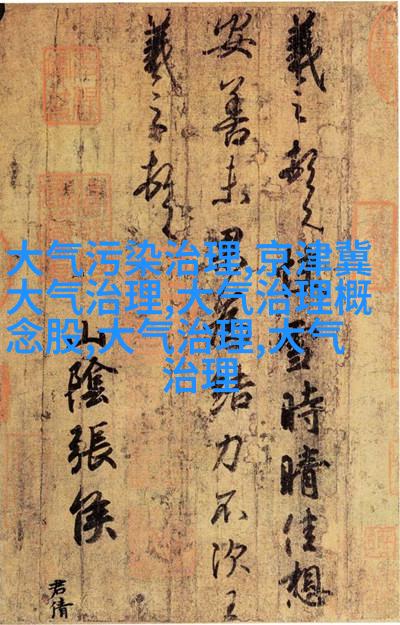 大气污染治理,京津冀
大气治理,大气治理概
念股,大气治理,大气
治理
羲之頓首快雪時晴佳想
安善未果為結力不次王
羲之頓首
山陰張侯
君倩